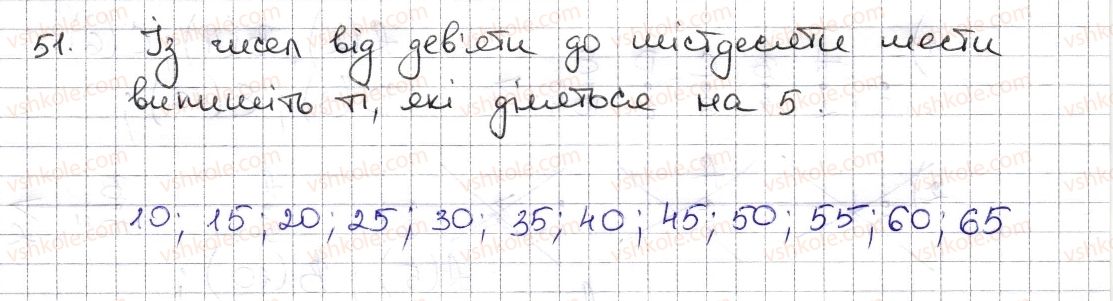 51. Із чисел від дев'яти до шістдесяти шести
випишіть ті, які діляться на 5.
10; 15; 20; 25; 30; 35; 40; 45; 50; 55; 60; 65